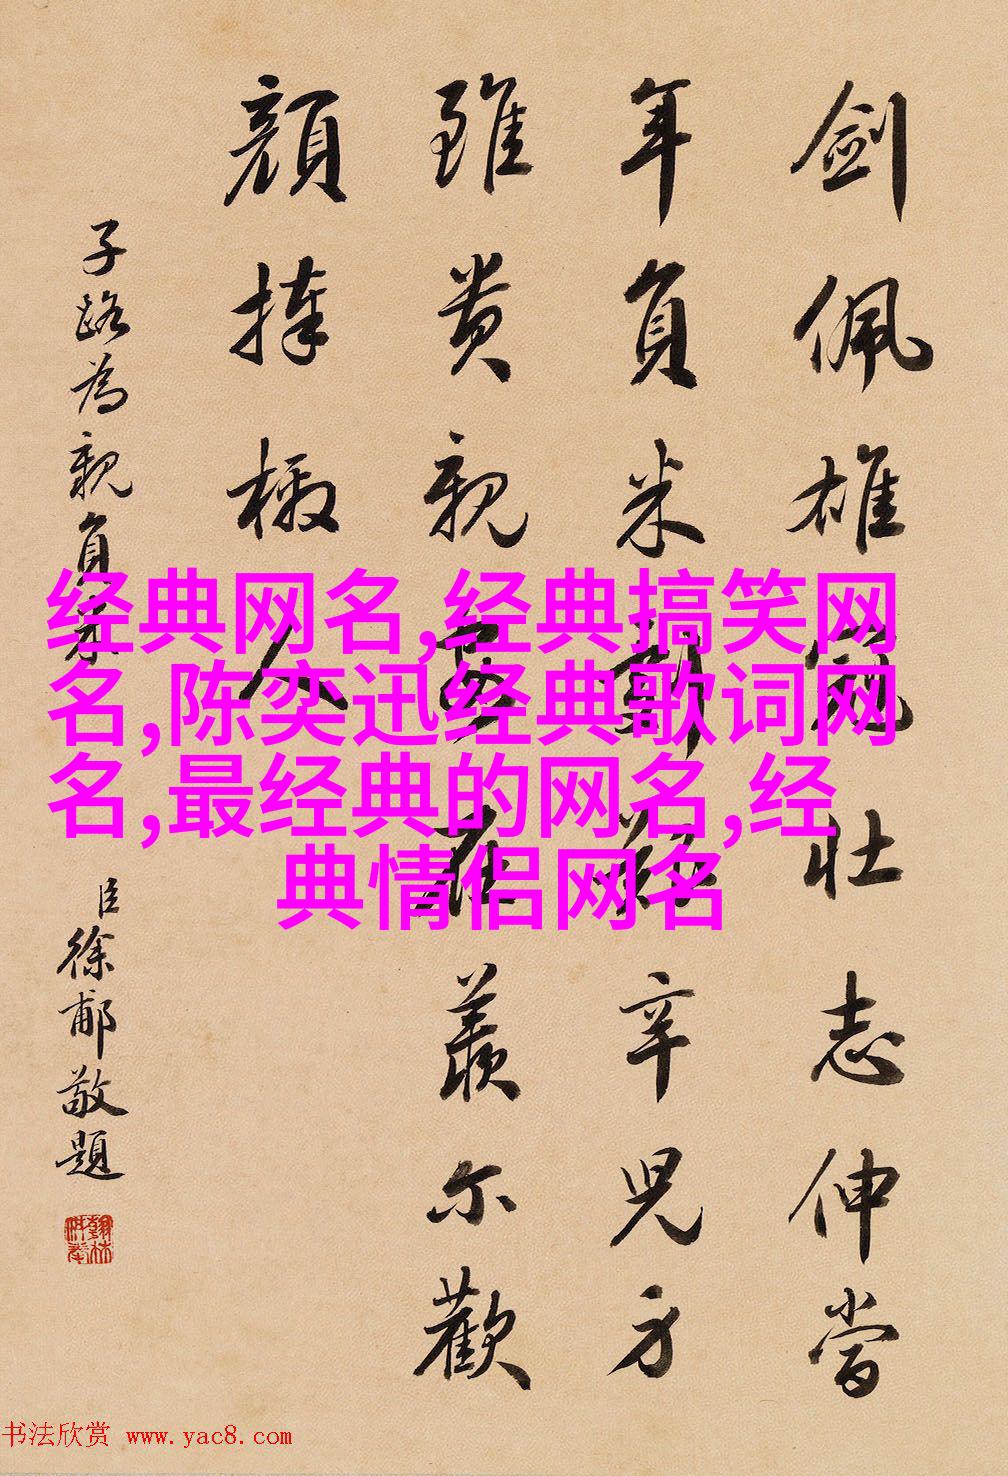 劍佩雄冠壮志伸當
年負米艱辛兒方
雖貴親在羨尔歡
顏捧檄人
子路為親負米
臣徐郙敬題
经典网名,经典搞笑网
名,陈奕迅经典歌词网
名,最经典的网名,经
典情侣网名
书法欣赏 www.yac8.com